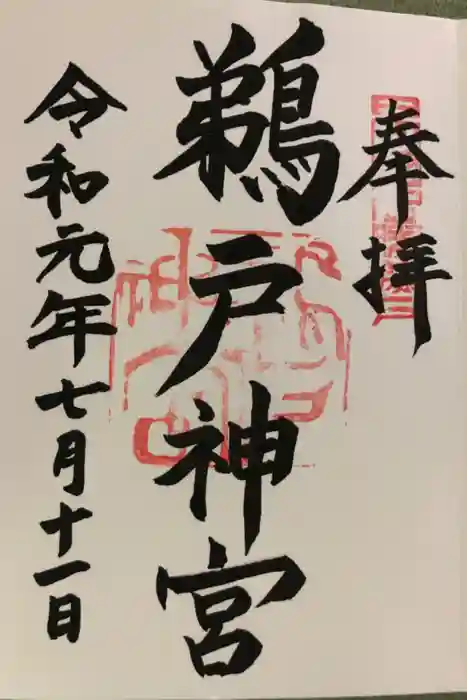 奉拝
鵜戸神宮
令和元年七月十一日